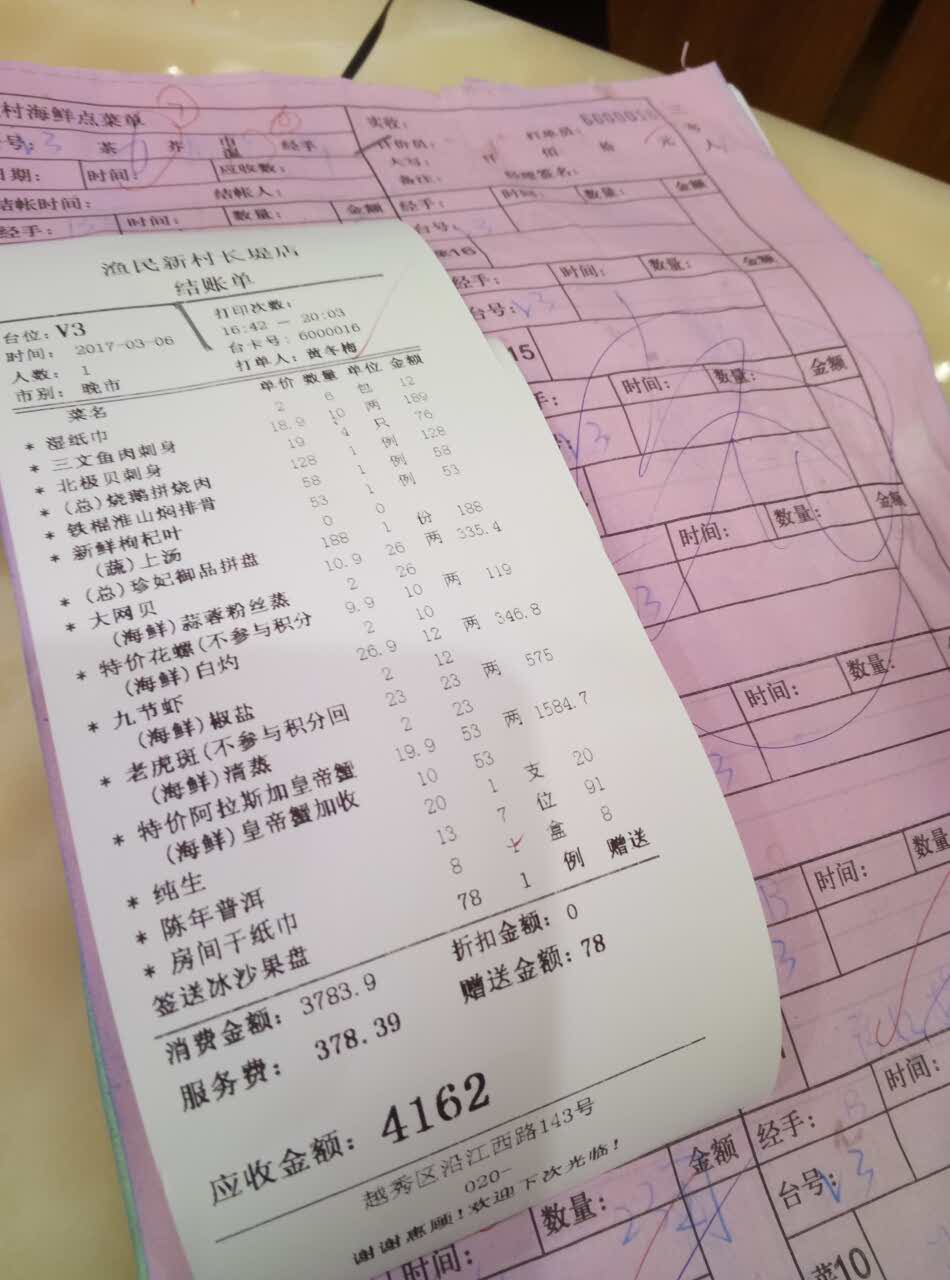 渔民新村长堤店
结账单
台位: V3
打印次数:
时间: 2017-03-06
16:42 - 20:03
人数: 1
台卡号: 6000016
市别: 晚市
打单人: 黄冬梅
菜名 单价 数量 单位 金额
* 湿纸巾 2 6 包 12
* 三文鱼肉刺身 18.9 10 两 189
* 北极贝刺身 19 4 只 76
* (总)烧鹅拼烧肉 128 1 例 128
* 铁棍淮山焖排骨 58 1 例 58
* 新鲜枸杞叶 53 1 例 53
(蔬)上汤 0 0
* (总)珍妃御品拼盘 188 1 份 188
* 大网贝 10.9 26 两 335.4
(海鲜)蒜蓉粉丝蒸 2 26
* 特价花螺(不参与积分 9.9 10 两 119
(海鲜)白灼 2 10
* 九节虾 26.9 12 两 346.8
(海鲜)椒盐 2 12
* 老虎斑(不参与积分回 23 23 两 575
(海鲜)清蒸 2 23
* 特价阿拉斯加皇帝蟹 19.9 53 两 1584.7
(海鲜)皇帝蟹加收 10 53
* 纯生 20 1 支 20
* 陈年普洱 13 7 位 91
* 房间干纸巾 8 1 盒 8
签送冰沙果盘 78 1 例 赠送
消费金额: 3783.9
折扣金额: 0
服务费: 378.39
赠送金额: 78
应收金额: 4162
越秀区沿江西路143号
020-
谢谢惠顾!欢迎下次光临!
村海鲜点菜单
实收:
6000016
台号: V3 茶 芥 经手
日期: 时间: 应收数:
结帐时间: 结帐人:
经手: 时间: 数量: 金额
备注: 经理签名:
经手: 时间: 数量: 金额
台号: V3
经手: 时间: 数量: 金额
台号: V3
15
手: 时间: 数量: 金额
V3
时间: 数量: 金额
3
时间: 数量:
3
时间: 数量
3
时间: 数量: 金额
经手: 时间:
台号: V3
菜10